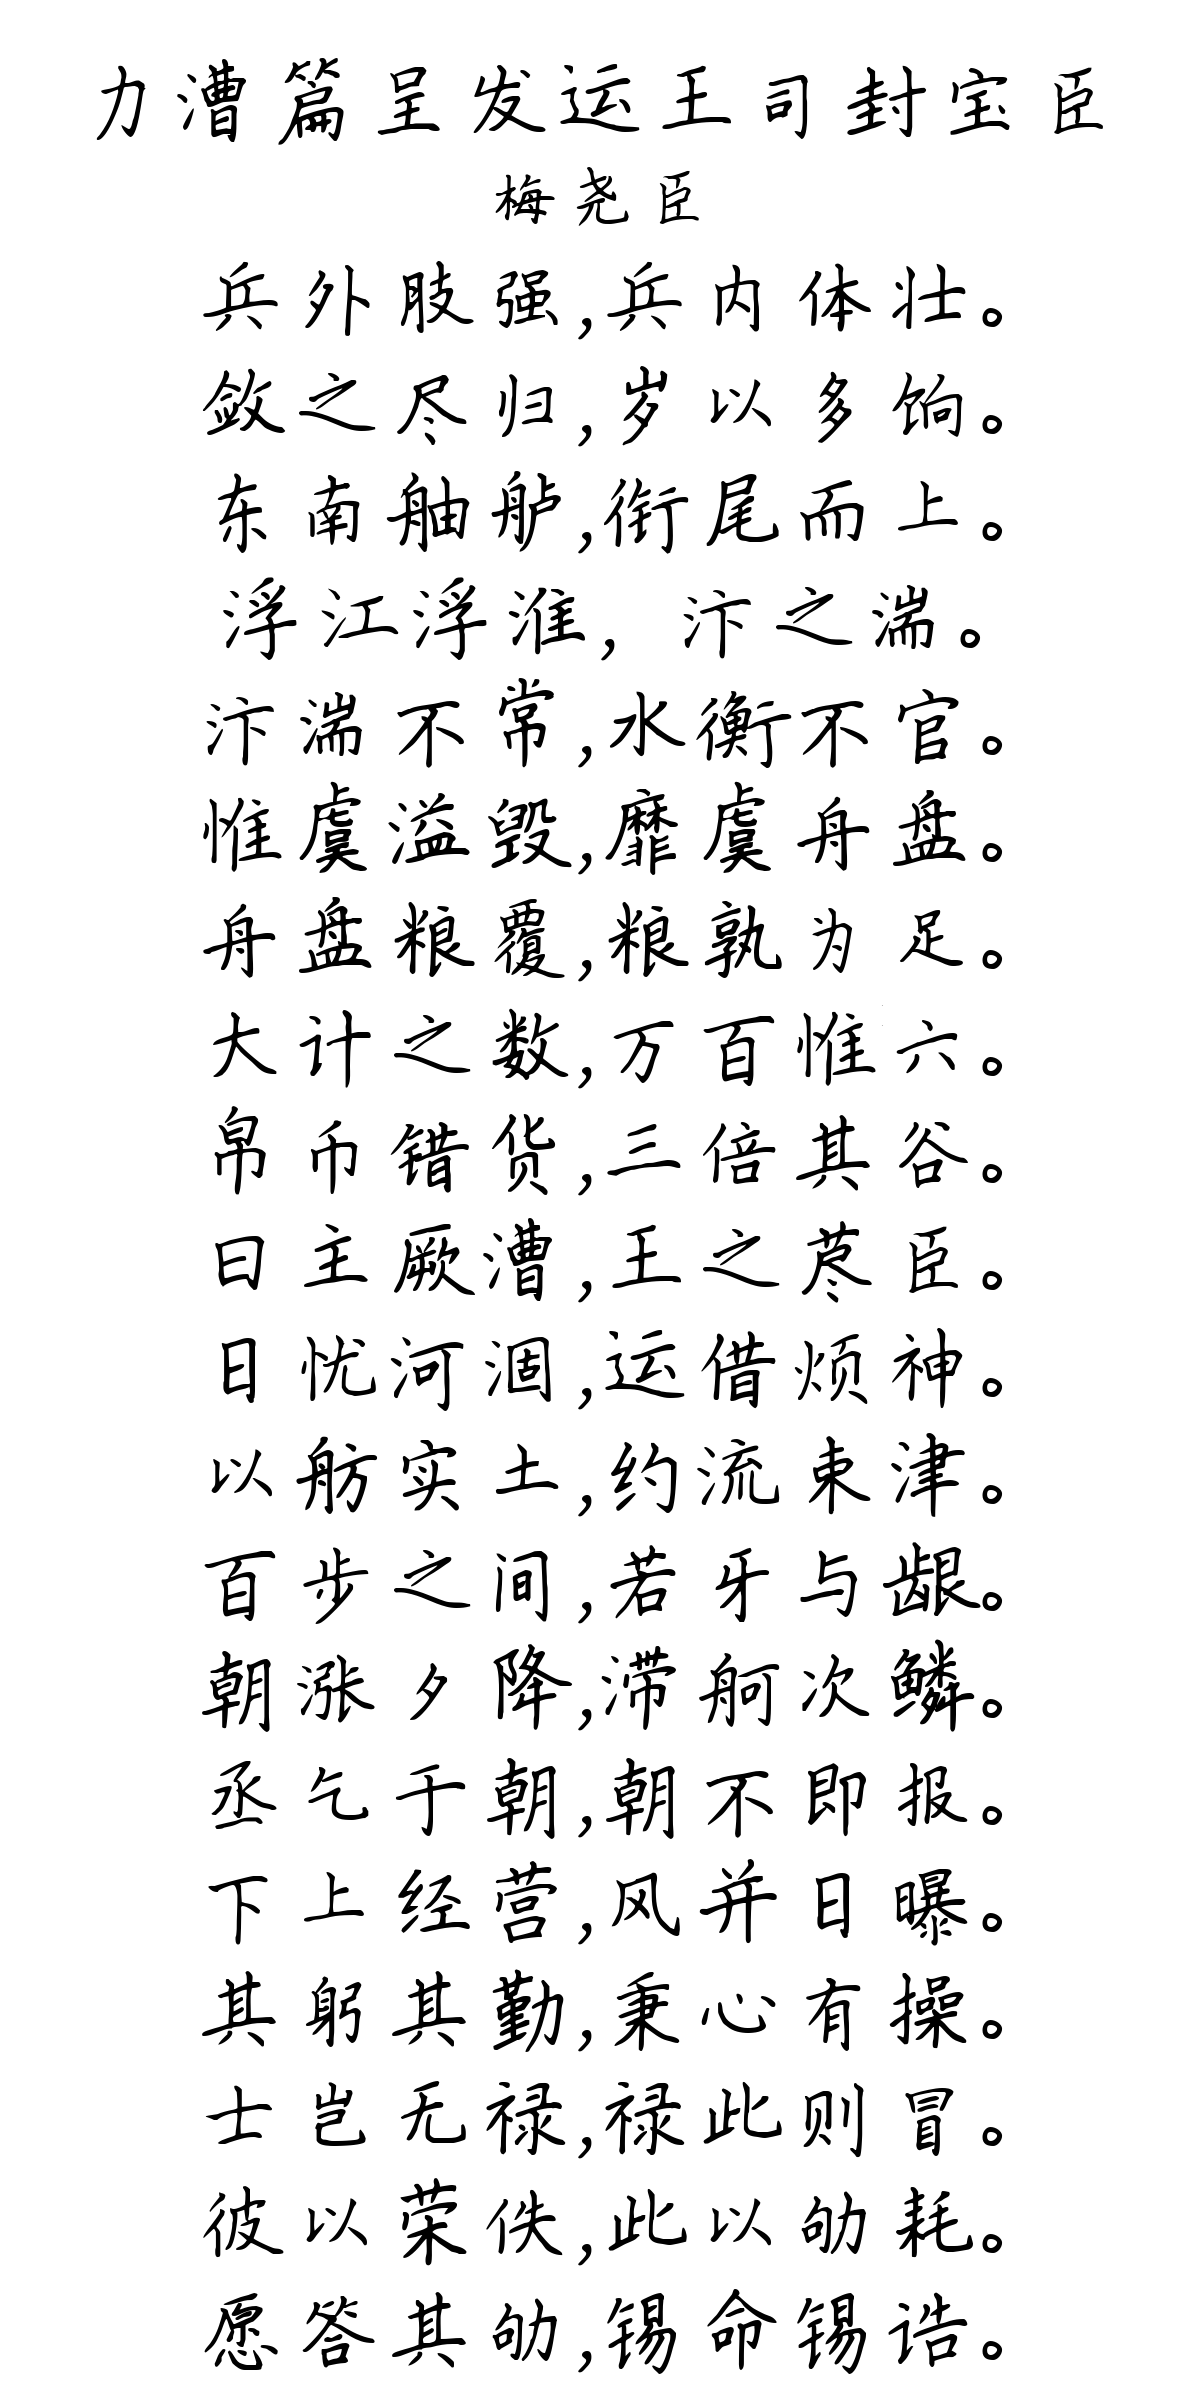 力漕篇呈发运王司封宝臣
梅尧臣
兵外肢强,兵内体壮。
敛之尽归,岁以多饷。
东南舳舻,衔尾而上。
浮江浮淮,汴之湍。
汴湍不常,水衡不官。
惟虞溢毁,靡虞舟盘。
舟盘粮覆,粮孰为足。
大计之数,万百惟六。
帛币错货,三倍其谷。
曰主厥漕,王之荩臣。
日忧河涸,运借烦神。
以舫实土,约流束津。
百步之间,若牙与龈。
朝涨夕降,滞舸次鳞。
丞乞于朝,朝不即报。
下上经营,风并日曝。
其躬其勤,秉心有操。
士岂无禄,禄此则冒。
彼以荣佚,此以劬耗。
愿答其劬,锡命锡诰。